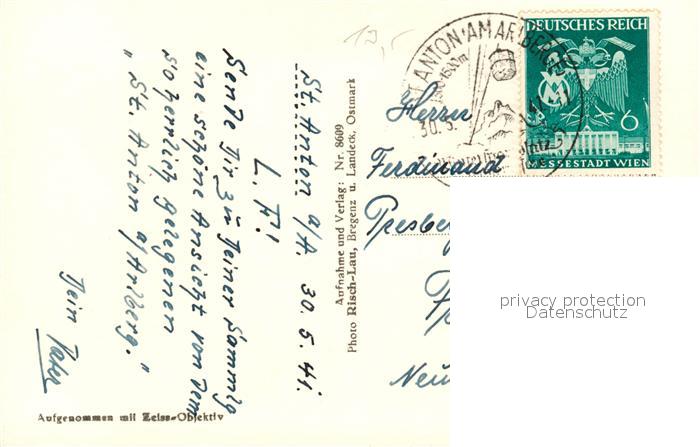 St. Anton a/A. 30.5.41.
L. F!
Sende Dir zu Deiner Sammlg
eine schöne Ansicht von dem
so herrlich gelegenen
"St. Anton a/Arlberg."
Dein Vater
Aufgenommen mit Zeiss-Objektiv
Aufnahme und Verlag: Nr. 8609
Photo Risch-Lau, Bregenz u. Landeck, Ostmark
12,-
ST. ANTON AM ARLBERG
30.5.
DEUTSCHES REICH
6
MESSESTADT WIEN
Herrn
Ferdinand
privacy protection
Datenschutz